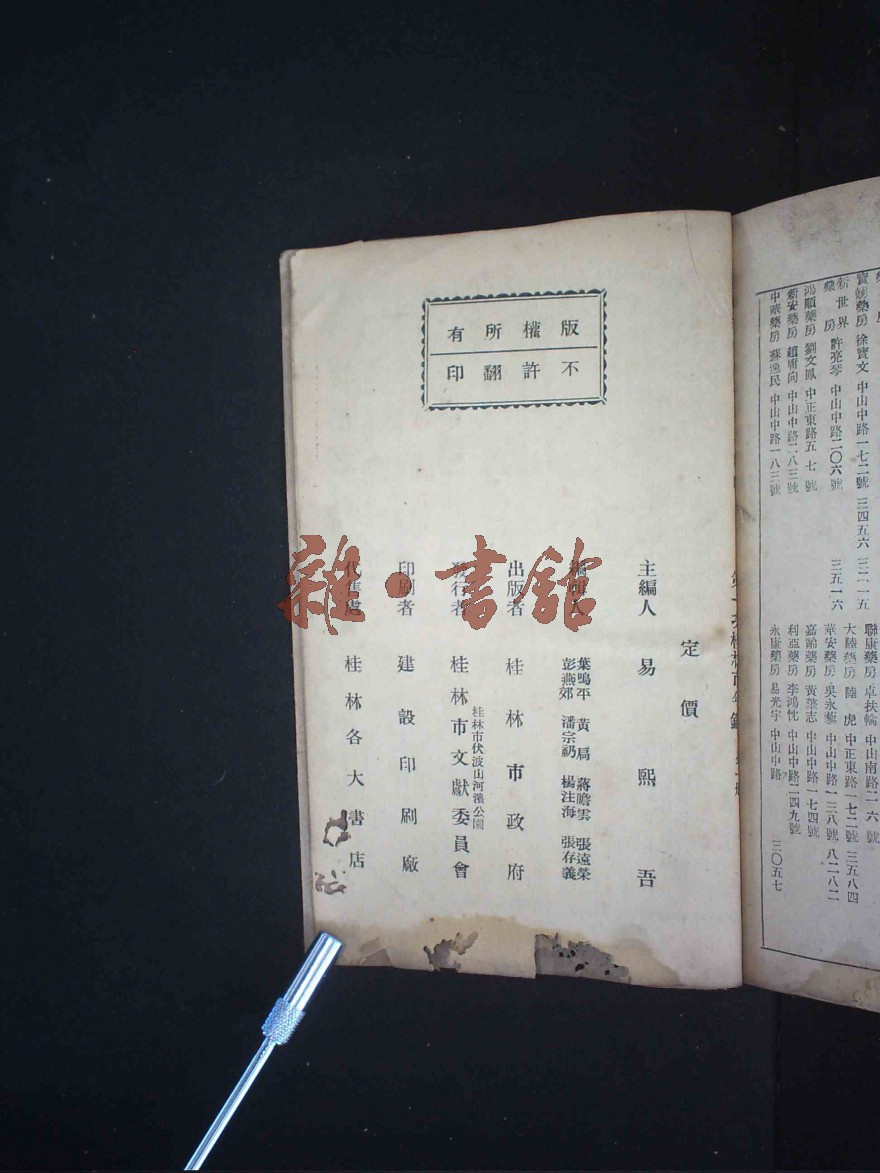 版權所有
不許翻印
定價
主編人 易熙吾
編輯人 葉鳴平 黃局 蔣瞻雲 張遠榮
彭燕郊 潘宗礽 楊注海 張存義
出版者 桂林市政府
桂林市伏波山河濱公園
發行者 桂林市文獻委員會
印刷者 建設印刷廠
代售處 桂林各大書店
雜·書館
寶馥藥房 徐寶文 中山中路一七二號 三四五六 三二一五
新世界藥房 許亮琴 中山中路二〇六號 三五一六
鴻順藥房 劉文鳳 中正東路五七號
新安藥房 趙庸向 中山中路二八三號
中華藥房 蘇逸民 中山中路一八三號
聯康藥房 卓扶輪 中山南路二六號
大陸藥房 陸虎 中正東路一七二號 三五八四
華安藥房 吳永藜 中山中路一三八號 八二八二
嘉齡藥房 黃葆志 中山中路一七四號
利亞藥房 李鴻忱 中山中路二四九號
永康藥房 易光宇 中山中路 三〇五七